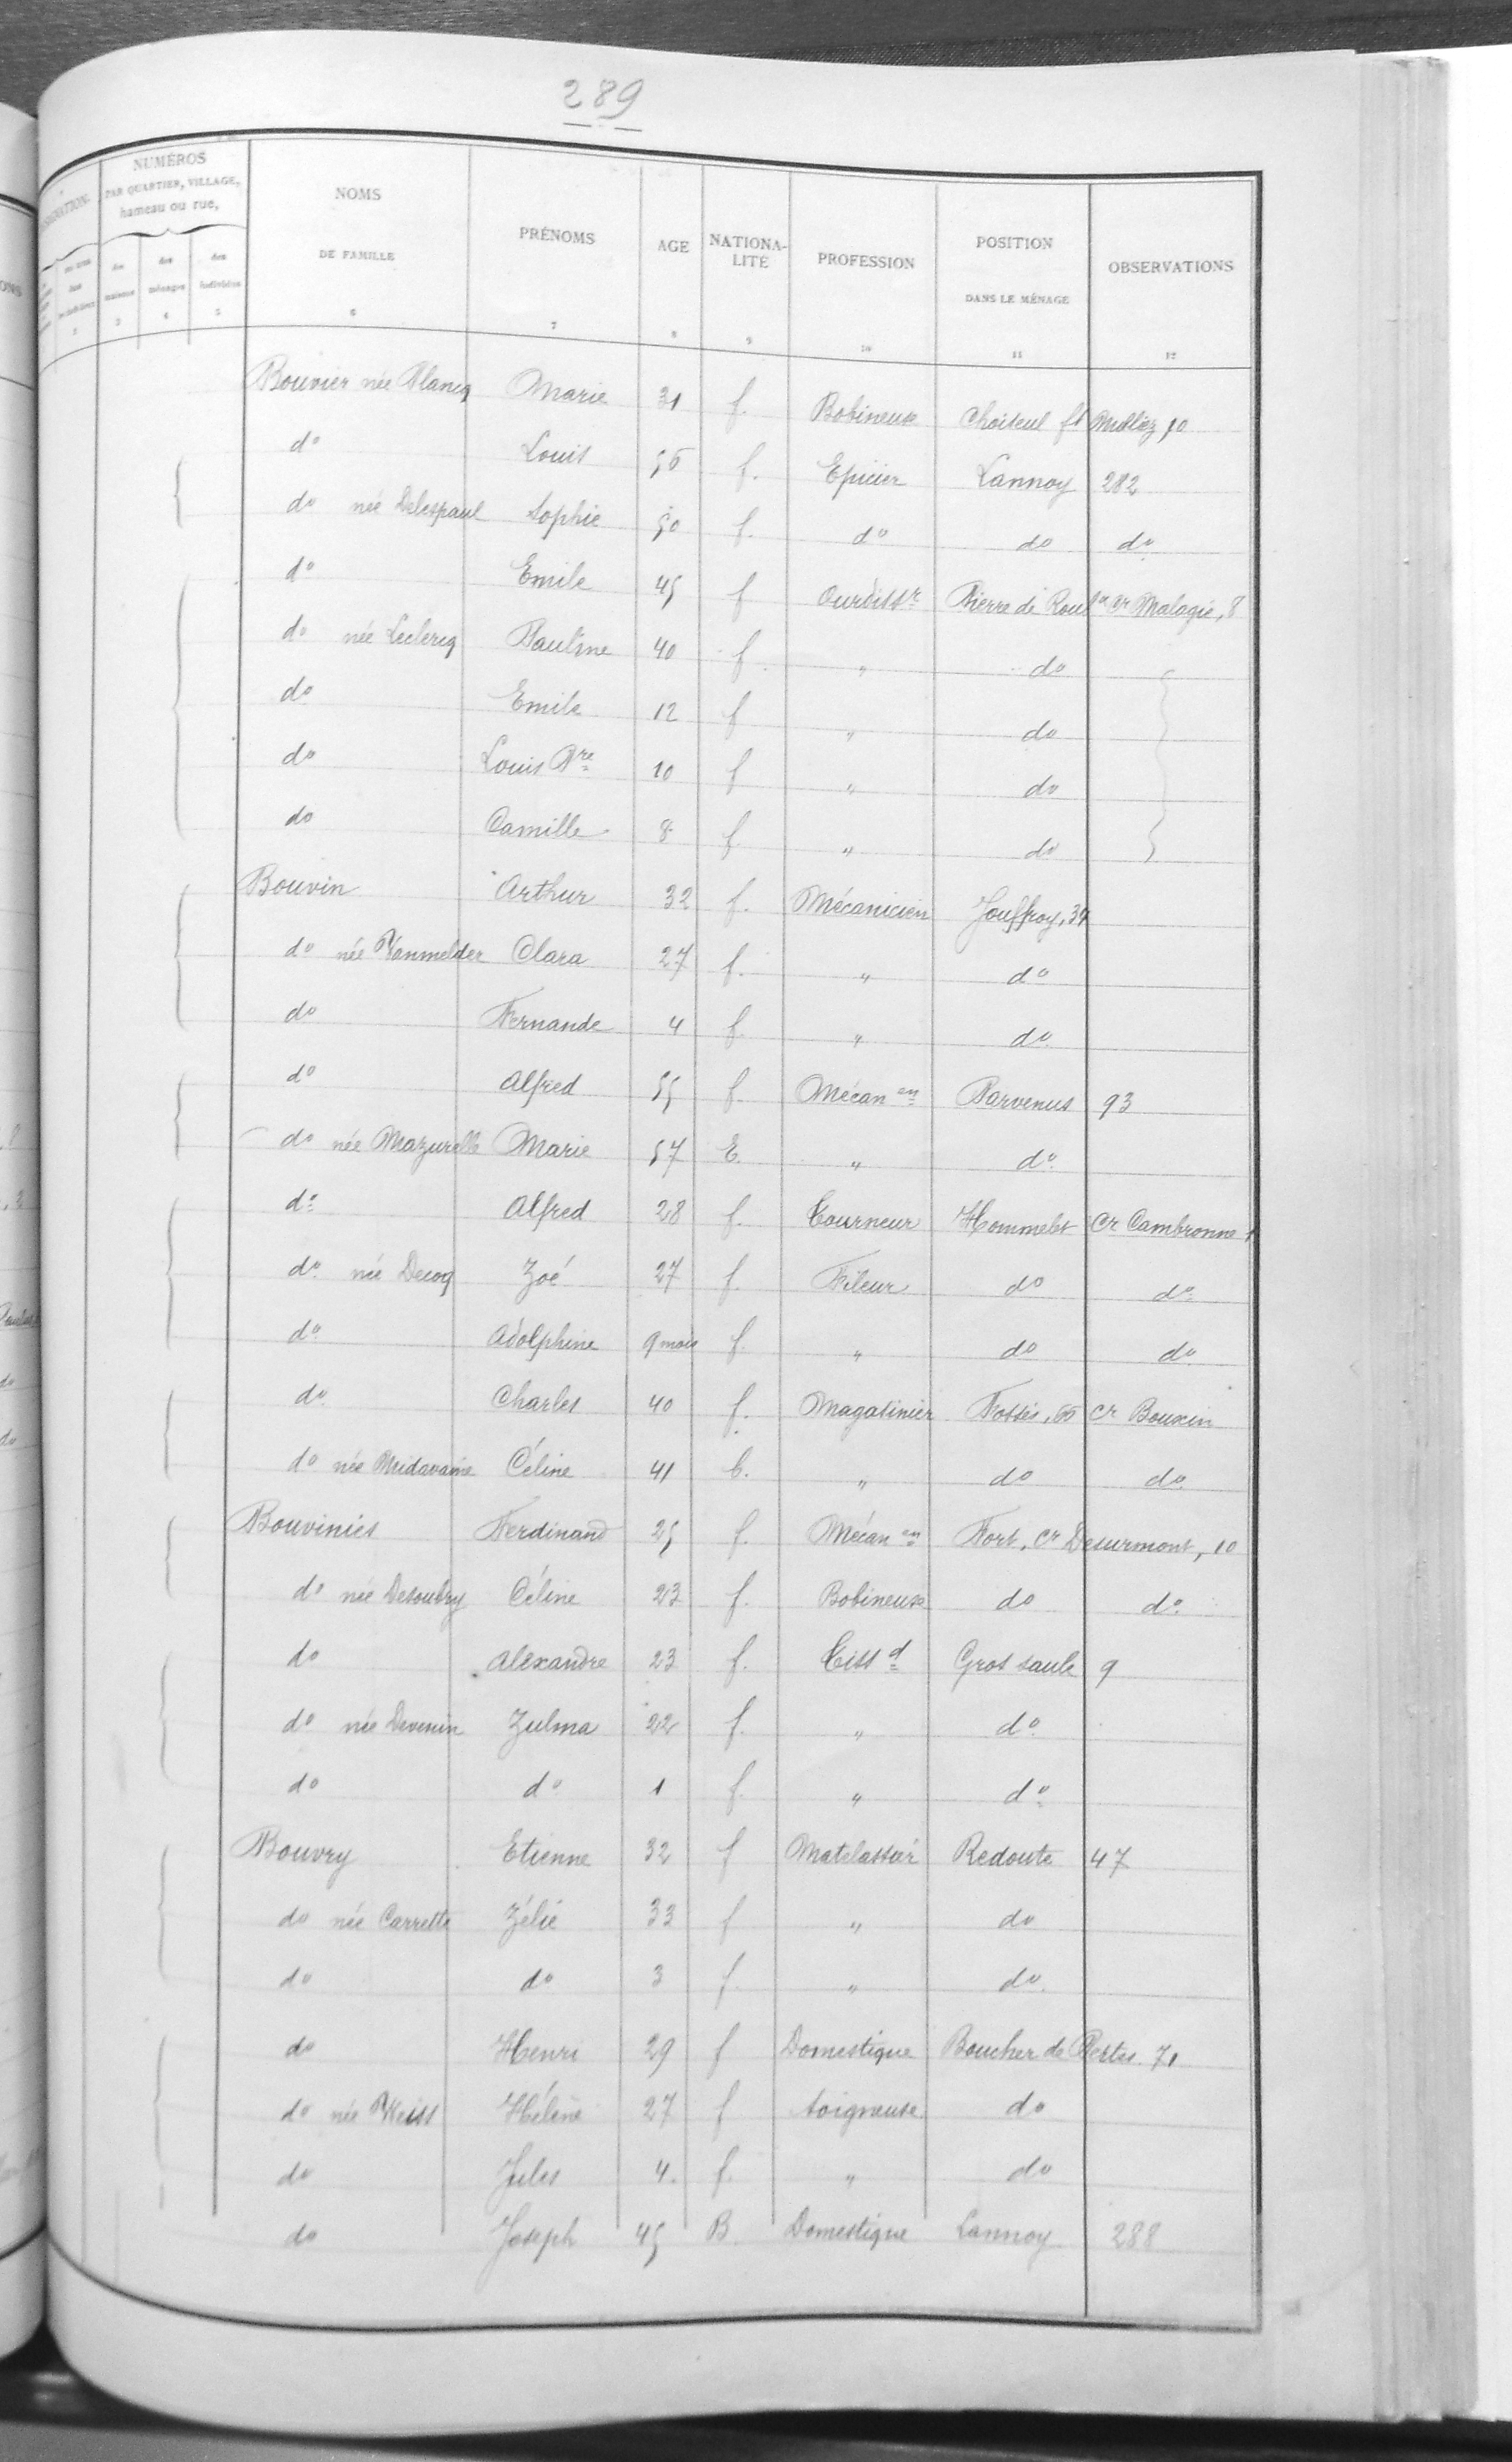 289
NUMÉROS
PAR QUARTIER, VILLAGE,
hameau ou rue,
des maisons des ménages des individus
NOMS DE FAMILLE PRÉNOMS AGE NATIONALITÉ PROFESSION POSITION DANS LE MÉNAGE OBSERVATIONS
2 3 4 5 6 7 8 9 10 11 12
Bouvier née Plancq Marie 31 f. Bobineuse Choiseul ft Mulliez 10
do Louis 56 f. Epicier Lannoy 282
do née Delespaul Sophie 50 f. do do do
do Emile 45 f Ourdissr Pierre de Roubx cr Malagie, 8
do née Leclercq Pauline 40 f. " do
do Emile 12 f " do
do Louis Bre 10 f " do
do Camille 8 f " do
Bouvin Arthur 32 f. Mécanicien Jouffroy, 34
do née Vanmelder Clara 27 f. " do
do Fernande 4 f. " do
do Alfred 55 f. Mécanen Parvenus 93
do née Mazurelle Marie 57 E. " do
do Alfred 28 f. Tourneur Hommelet Cr Cambronne 1
do née Decoq Zoé 27 f. Fileur do do
do Adolphine 9 mois f. " do do
do Charles 40 f. Magasinier Fossés, 65 cr Bouxin
do née Midavaine Céline 41 b. " do do
Bouviniès Ferdinand 25 f. Mécanen Fort, cr Desurmont, 10
do née Desoubry Céline 23 f. Bobineuse do do
do Alexandre 23 f. Tissd Gros saule 9
do née Devenin Zulma 22 f. " do
do do 1 f. " do
Bouvry Etienne 32 f Matelassier Redoute 47
do née Carrette Zélie 33 f " do
do do 3 f. " do
do Henri 29 f Domestique Boucher de Pertes 71
do née Weiss Hélène 27 f Soigneuse do
do Jules 4. f. " do
do Joseph 45 B. Domestique Lannoy 288